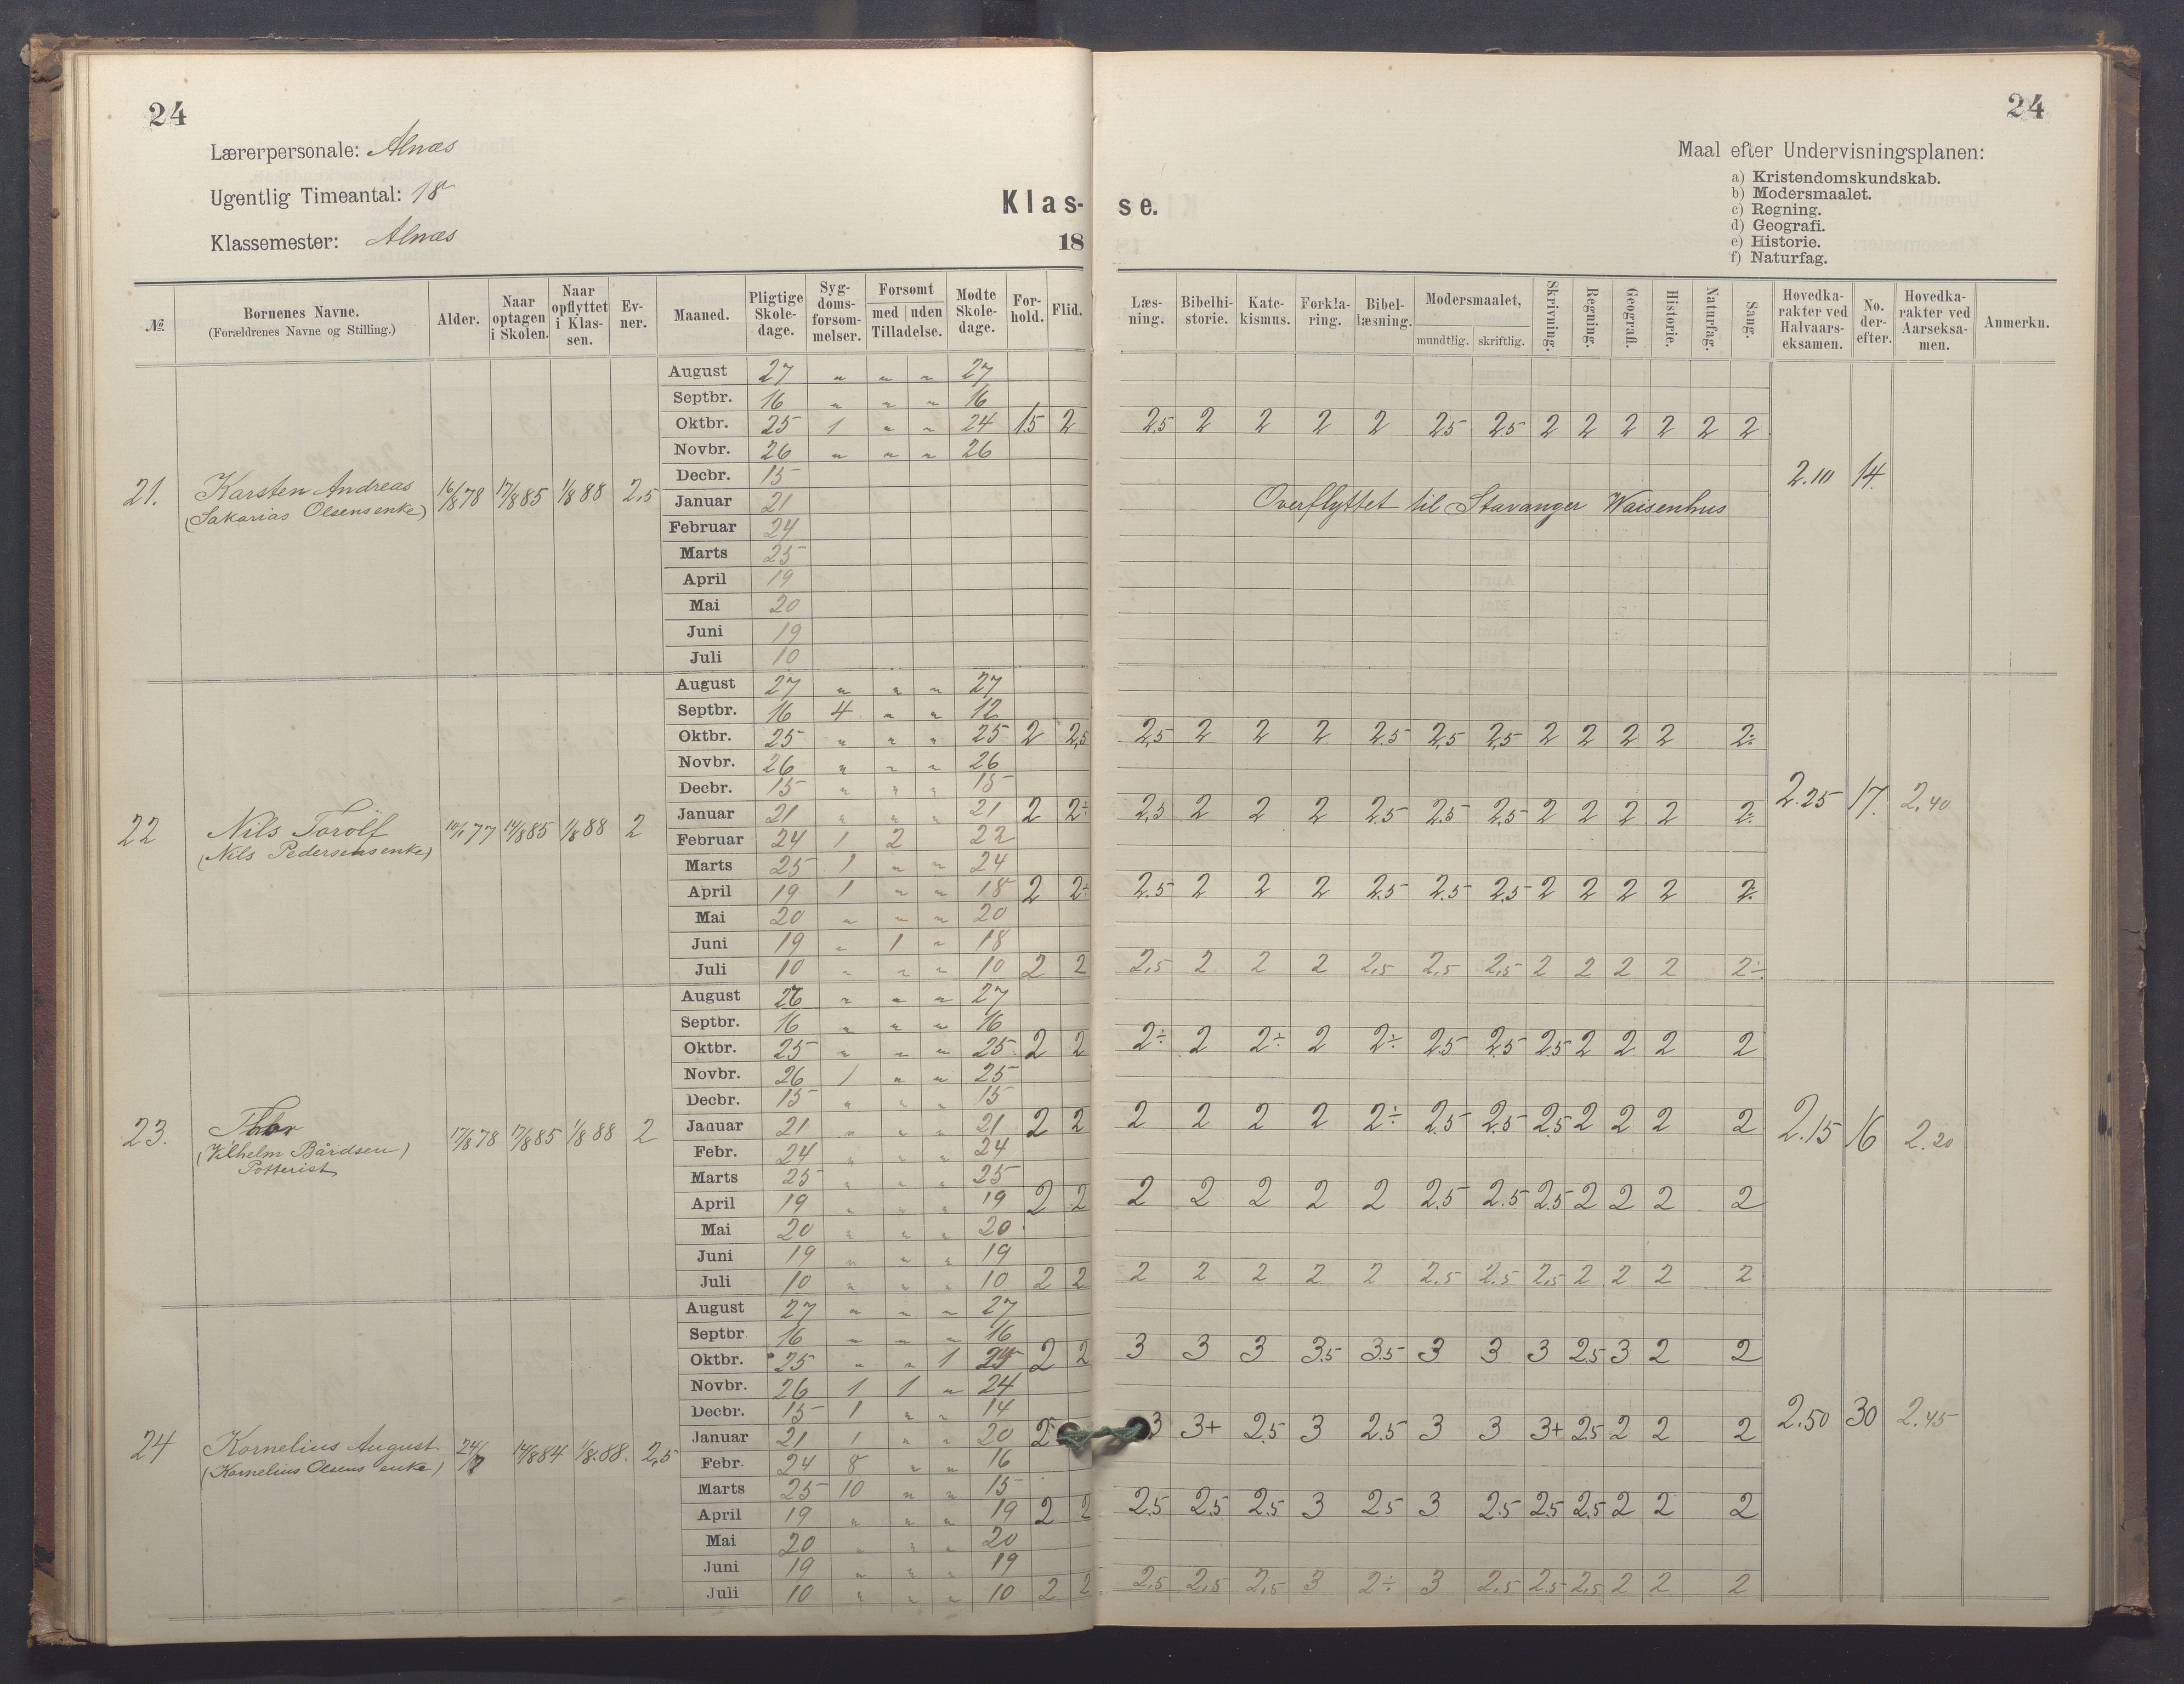 24
Lærerpersonale: Alnæs
Ugentlig Timeantal: 18
Klassemester: Alnæs
Klas-
18
№ Børnenes Navne. (Forældrenes Navne og Stilling.) Alder. Naar optagen i Skolen. Naar opflyttet i Klassen. Evner. Maaned. Pligtige Skoledage. Sygdomsforsømmelser. Forsømt med | uden Tilladelse. Mødte Skoledage. Forhold. Flid.
21. Karsten Andreas 16/8 78 17/8 85 1/8 88 2,5
(Sakarias Olsens enke)
August 27 " " " 27
Septbr. 16 " " " 16
Oktbr. 25 1 " " 24 1,5 2
Novbr. 26 " " " 26
Decbr. 15
Januar 21
Februar 24
Marts 25
April 19
Mai 20
Juni 19
Juli 10
22 Nils Torolf 10/1 77 14/8 85 1/8 88 2
(Nils Pedersens enke)
August 27 " " " 27
Septbr. 16 4 " " 12
Oktbr. 25 " " " 25 2 2,5
Novbr. 26 " " " 26
Decbr. 15 " " " 15
Januar 21 " " " 21 2 2÷
Februar 24 1 2 22
Marts 25 1 " " 24
April 19 1 " " 18 2 2÷
Mai 20 " " " 20
Juni 19 " 1 " 18
Juli 10 " " " 10 2 2
23. Thor 17/8 78 17/8 85 1/8 88 2
(Vilhelm Bårdsen)
Potterist
August 26 " " " 27
Septbr. 16 " " " 16
Oktbr. 25 " " " 25 2 2
Novbr. 26 1 " " 25
Decbr. 15 " " " 15
Januar 21 " " " 21 2 2
Febr. 24 " " " 24
Marts 25 " " " 25
April 19 " " " 19 2 2
Mai 20 " " " 20
Juni 19 " " " 19
Juli 10 " " " 10 2 2
24 Kornelius August 24/7 14/8 84 1/8.88. 2,5
(Kornelius Olsens enke)
August 27 " " " 27
Septbr 16 " " " 16
Oktbr. 25 " " 1 2 2
Novbr. 26 1 1 " 24
Decbr. 15 1 " " 14
Januar 21 1 " " 20 2
Febr. 24 8 " " 16
Marts 25 10 " " 15
April 19 " " " 19 2 2
Mai 20 " " " 20
Juni 19 " " " 19
Juli 10 " " " 10 2 2
24
Maal efter Undervisningsplanen:
a) Kristendomskundskab.
b) Modersmaalet.
c) Regning.
d) Geografi.
e) Historie.
f) Naturfag.
se.
Læsning. Bibelhistorie. Katekismus. Forklaring. Bibellæsning. Modersmaalet, mundtlig. skriftlig. Skrivning. Regning. Geografi. Historie. Naturfag. Sang. Hovedkarakter ved Halvaarseksamen. No. derefter. Hovedkarakter ved Aarseksamen. Anmerkn.
2,5 2 2 2 2 2,5 2,5 2 2 2 2 2 2
2.10 14.
Overflyttet til Stavanger Waisenhus
2,5 2 2 2 2.5 2,5 2,5 2 2 2 2 2÷
2.25 17. 2,40
2,5 2 2 2 2.5 2.5 2,5 2 2 2 2 2÷
2.5 2 2 2 2.5 2.5 2.5 2 2 2 2 2÷
2,5 2 2 2 2,5 2,5 2,5 2 2 2 2 2÷
2÷ 2 2÷ 2 2÷ 2.5 2.5 2.5 2 2 2 2
2 2 2 2 2÷ 2.5 2.5 2.5 2 2 2 2
2.15 16 2.20
2 2 2 2 2 2.5 2.5 2.5 2 2 2 2
2 2 2 2 2 2.5 2.5 2,5 2 2 2 2
3 3 3 3.5 3.5 3 3 3 2.5 3 2 2
2.50 30 2.45
3 3+ 2.5 3 2.5 3 3 3+ 2.5 2 2 2
2.5 2.5 2.5 3 2.5 3 2.5 2.5 2.5 2 2 2
2,5 2,5 2,5 3 2÷ 3 2,5 2.5 2,5 2 2 2